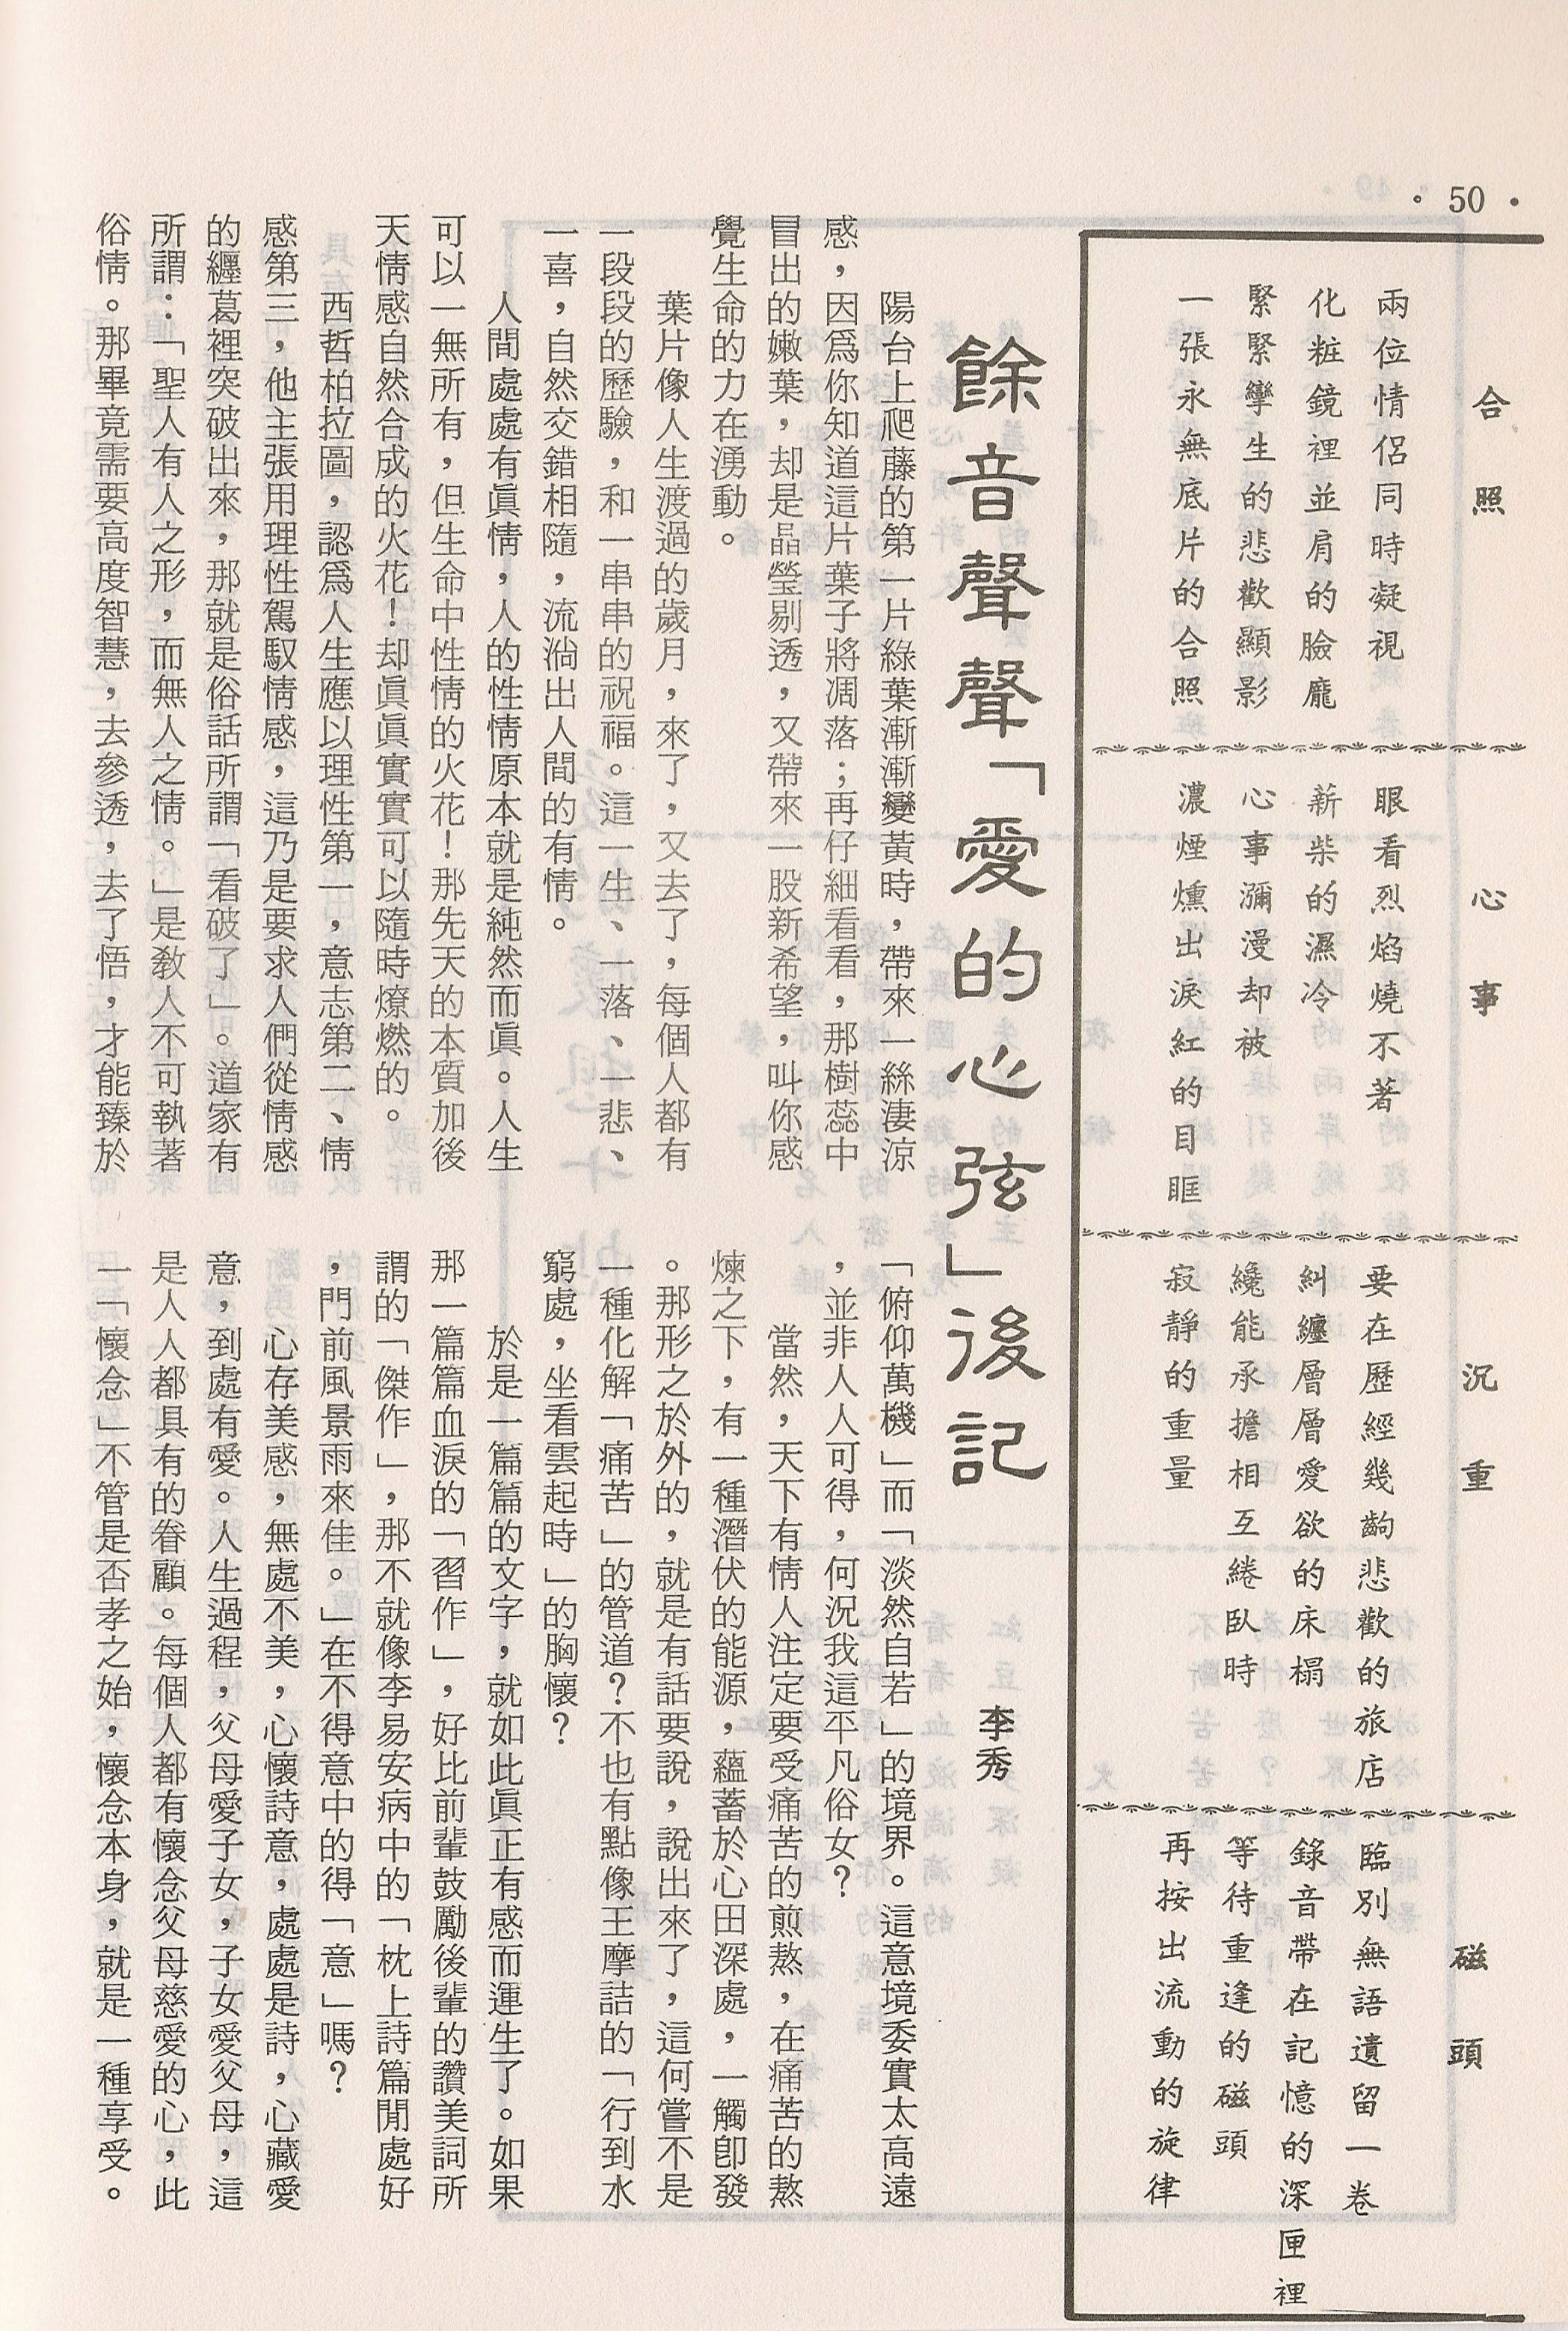 · 50 ·
合照
兩位情侶同時凝視
化粧鏡裡並肩的臉龐
緊緊孿生的悲歡顯影
一張永無底片的合照
心事
眼看烈焰燒不著
薪柴的濕冷
心事瀰漫却被
濃煙燻出淚紅的目眶
況重
要在歷經幾齣悲歡的旅店
糾纏層層愛欲的床榻
纔能承擔相互綣臥時
寂靜的重量
磁頭
臨別無語遺留一卷
錄音帶在記憶的深匣裡
等待重逢的磁頭
再按出流動的旋律
餘音聲聲「愛的心弦」後記
李秀
陽台上爬藤的第一片綠葉漸漸變黃時，帶來一絲淒涼
感，因爲你知道這片葉子將凋落；再仔細看看，那樹蕊中
冒出的嫩葉，却是晶瑩剔透，又帶來一股新希望，叫你感
覺生命的力在湧動。
葉片像人生渡過的歲月，來了，又去了，每個人都有
一段段的歷驗，和一串串的祝福。這一生、一落、一悲、
一喜，自然交錯相隨，流淌出人間的有情。
人間處處有眞情，人的性情原本就是純然而眞。人生
可以一無所有，但生命中性情的火花！那先天的本質加後
天情感自然合成的火花！却眞眞實實可以隨時燎燃的。
西哲柏拉圖，認爲人生應以理性第一，意志第二、情
感第三，他主張用理性駕馭情感，這乃是要求人們從情感
的纏葛裡突破出來，那就是俗話所謂「看破了」。道家有
所謂：「聖人有人之形，而無人之情。」是敎人不可執著
俗情。那畢竟需要高度智慧，去參透，去了悟，才能臻於
「俯仰萬機」而「淡然自若」的境界。這意境委實太高遠
，並非人人可得，何況我這平凡俗女？
當然，天下有情人注定要受痛苦的煎熬，在痛苦的熬
煉之下，有一種潛伏的能源，蘊蓄於心田深處，一觸卽發
。那形之於外的，就是有話要說，說出來了，這何嘗不是
一種化解「痛苦」的管道？不也有點像王摩詰的「行到水
窮處，坐看雲起時」的胸懷？
於是一篇篇的文字，就如此眞正有感而運生了。如果
那一篇篇血淚的「習作」，好比前輩鼓勵後輩的讚美詞所
謂的「傑作」，那不就像李易安病中的「枕上詩篇閒處好
，門前風景雨來佳。」在不得意中的得「意」嗎？
心存美感，無處不美，心懷詩意，處處是詩，心藏愛
意，到處有愛。人生過程，父母愛子女，子女愛父母，這
是人人都具有的眷顧。每個人都有懷念父母慈愛的心，此
一「懷念」不管是否孝之始，懷念本身，就是一種享受。